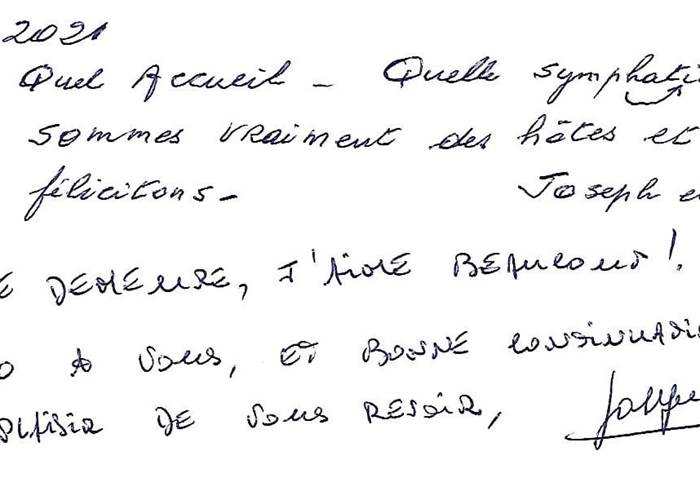 2021
Quel Accueil - Quelle symphati
sommes vraiment des hôtes et
félicitons - Joseph e
E DEMEURE, J'AIME BEAUCOUP !
O A VOUS, ET BONNE CONTINUATI
PLAISIR DE VOUS REVOIR,